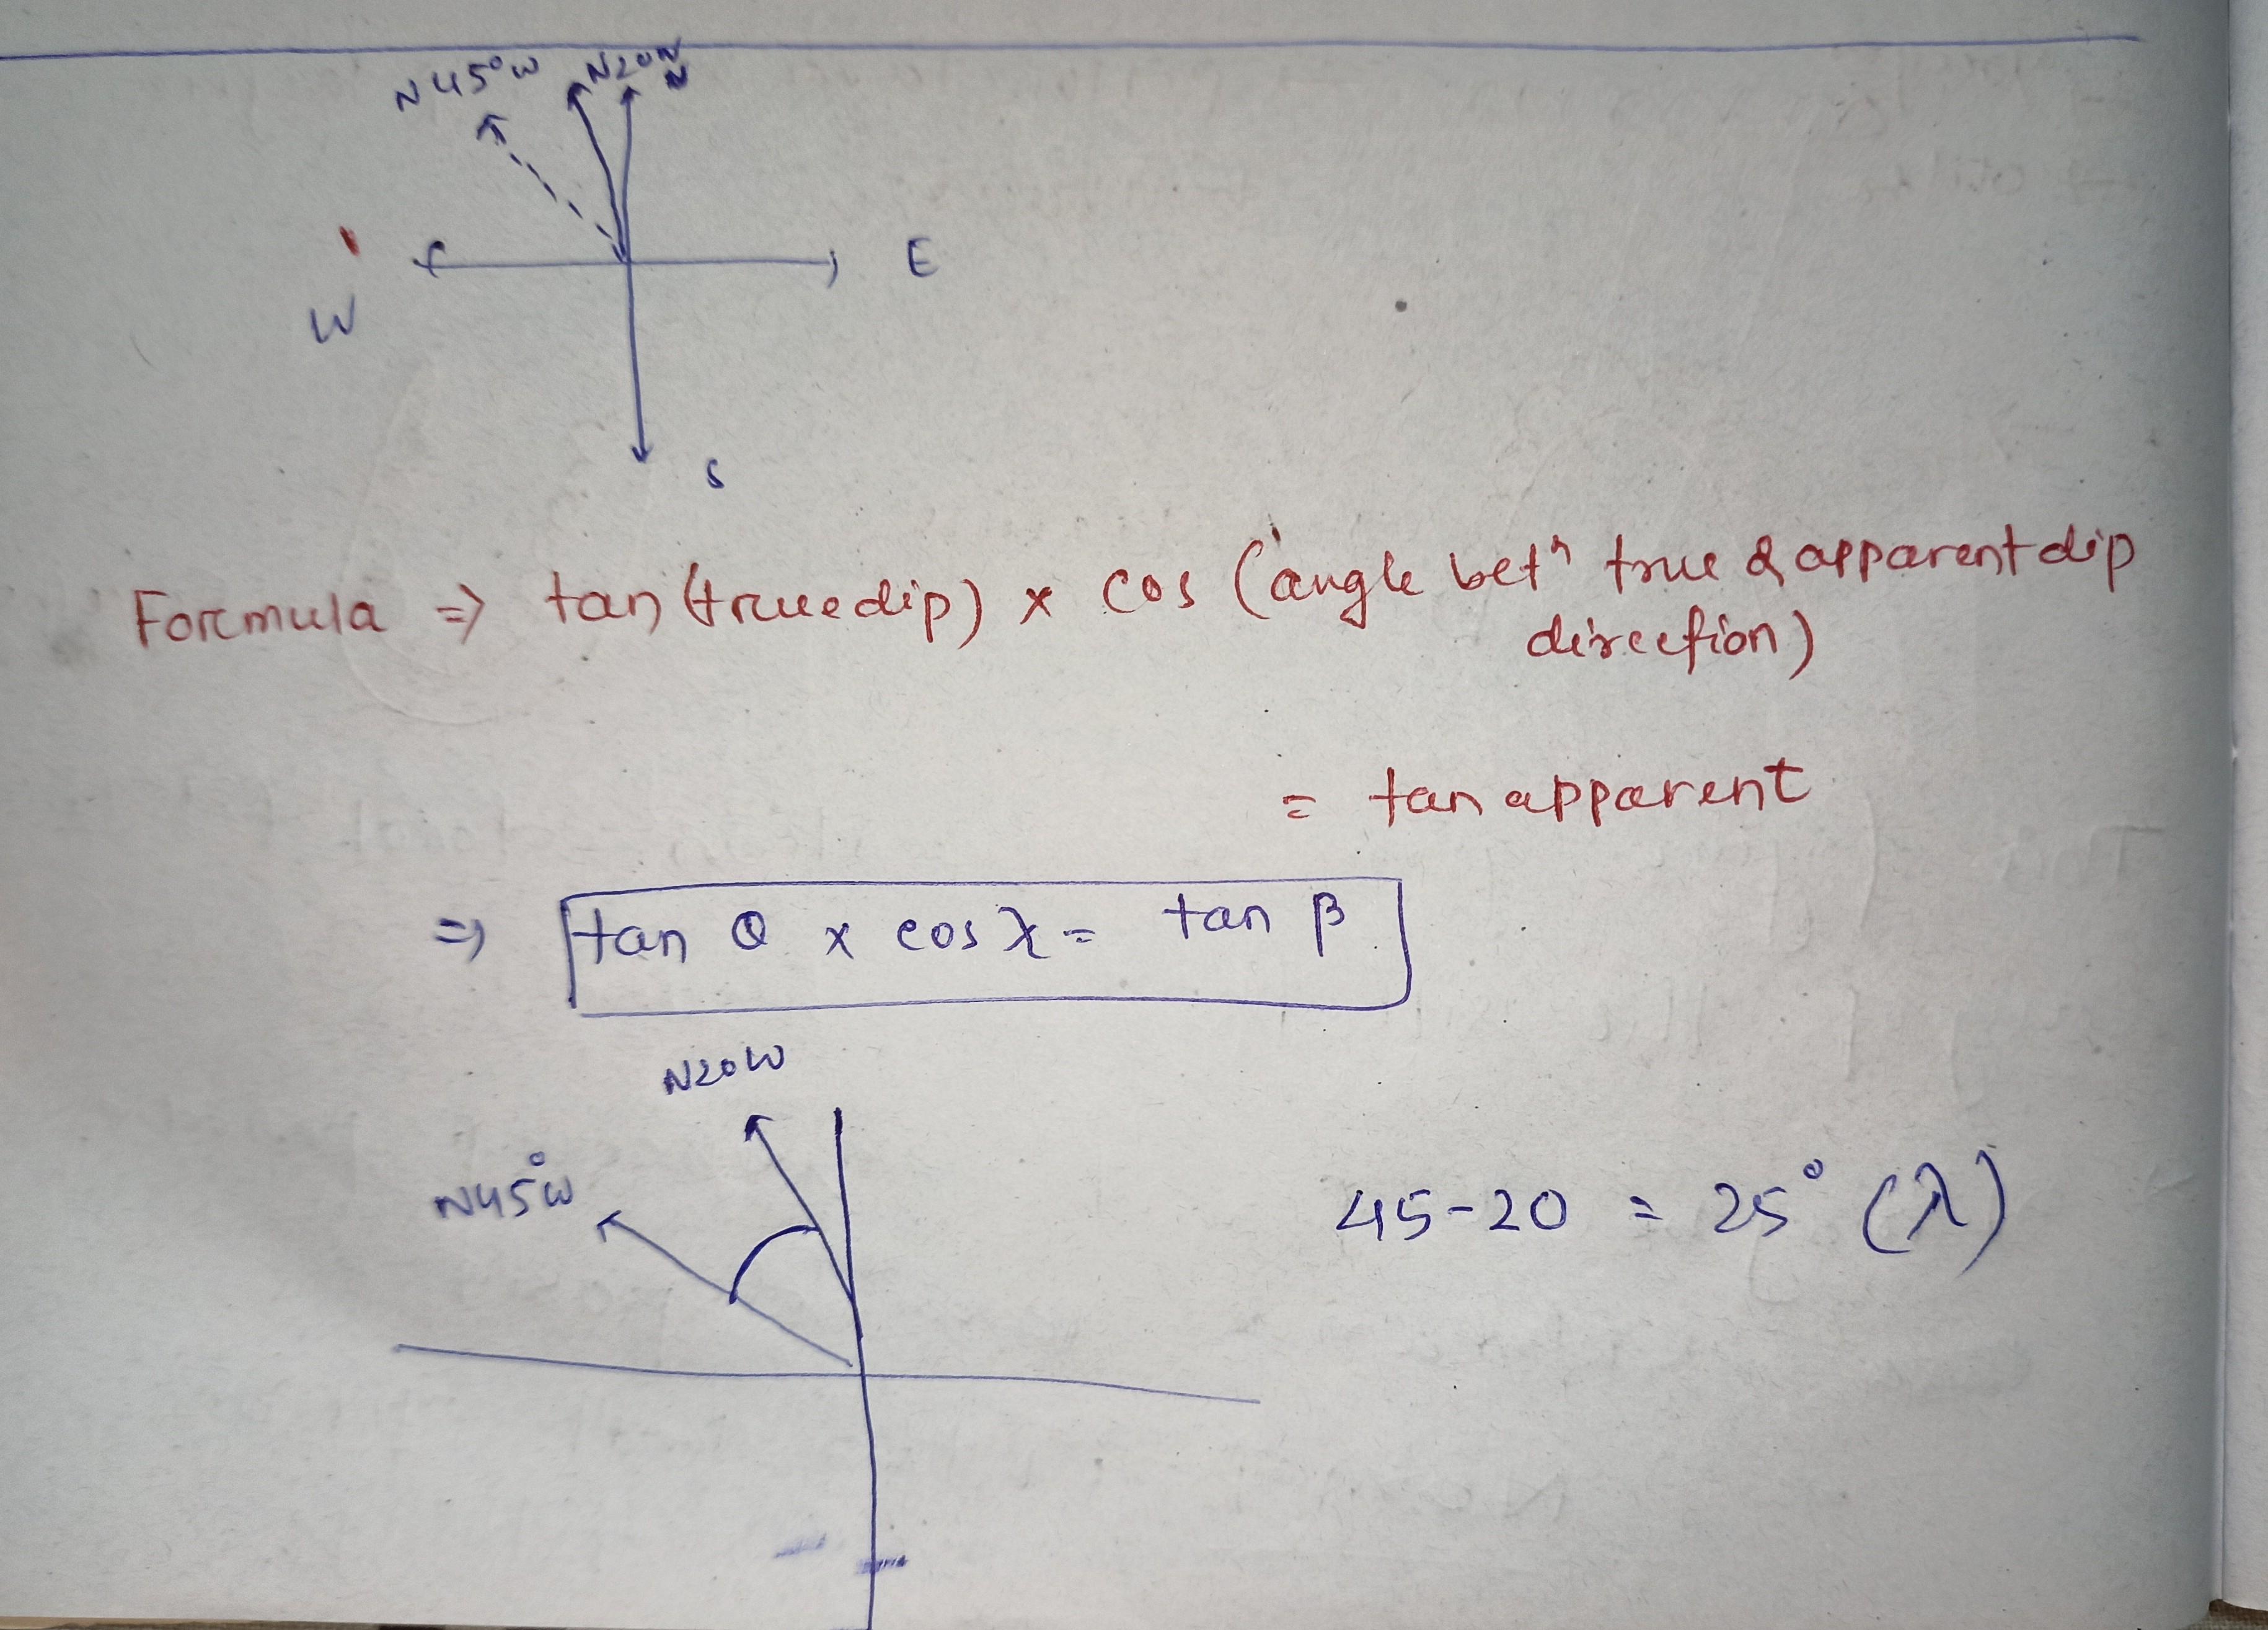 N45°W N20W N
W E
S
Formula ⇒ tan (true dip) x cos (angle betn true & apparent dip
direction)
= tan apparent
⇒ tan θ x cos λ = tan β
N20W
N45°W
45-20 = 25° (λ)